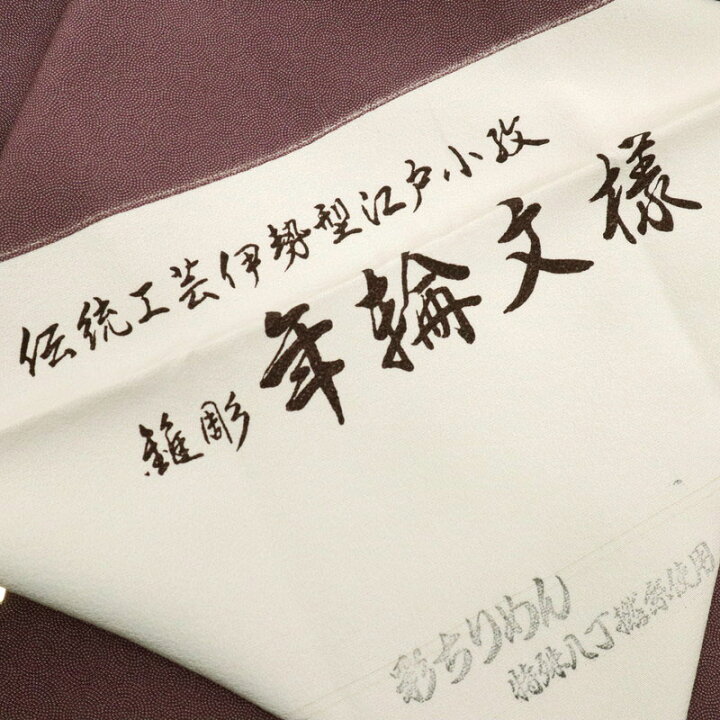 伝統工芸伊勢型江戸小紋
錐彫 年輪文様
彩ちりめん
特殊八丁撚糸使用